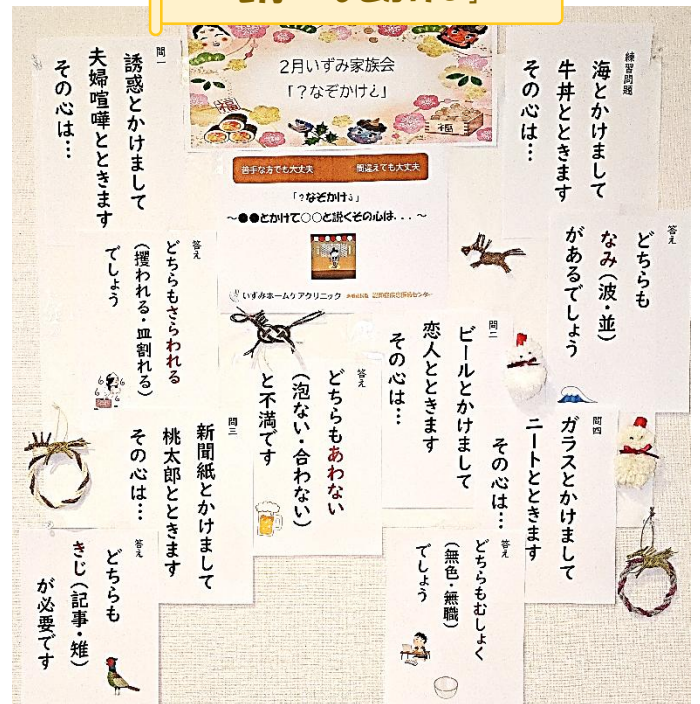 2月いずみ家族会
「?なぞかけ¿」
苦手な方でも大丈夫
間違えても大丈夫
「?なぞかけ¿」
~●●とかけて○○と説くその心は...~
いずみホームケアクリニック
練習問題
海とかけまして
牛丼とときます
その心は…
答え
どちらも
なみ(波・並)
があるでしょう
問一
誘惑とかけまして
夫婦喧嘩とときます
その心は…
答え
どちらもさらわれる
(攫われる・皿割れる)
でしょう
問二
ビールとかけまして
恋人とときます
その心は…
答え
どちらもあわない
(泡ない・合わない)
と不満です
問三
新聞紙とかけまして
桃太郎とときます
その心は…
答え
どちらも
きじ(記事・雉)
が必要です
問四
ガラスとかけまして
ニートとときます
その心は…
答え
どちらもむしょく
(無色・無職)
でしょう